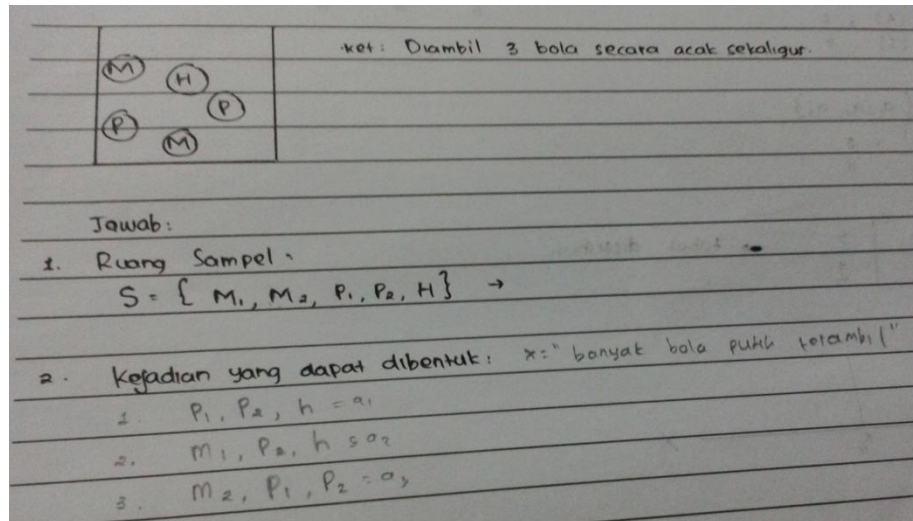 ket: Diambil 3 bola secara acak sekaligus.
M
H
P
P
M
Jawab:
1. Ruang Sampel.
S = { M₁, M₂, P₁, P₂, H } →
2. Kejadian yang dapat dibentuk: x = "banyak bola putih terambil"
1. P₁, P₂, h = a₁
2. m₁, P₂, h = a₂
3. m₂, P₁, P₂ = a₃